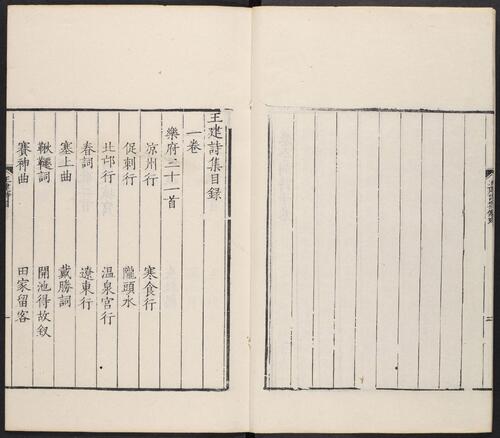 王建詩集目錄
一卷
樂府二十一首
涼州行 寒食行
促刺行 隴頭水
北邙行 溫泉宮行
春詞 遼東行
塞上曲 戴勝詞
鞦韆詞 開池得故釵
賽神曲 田家留客
一
二